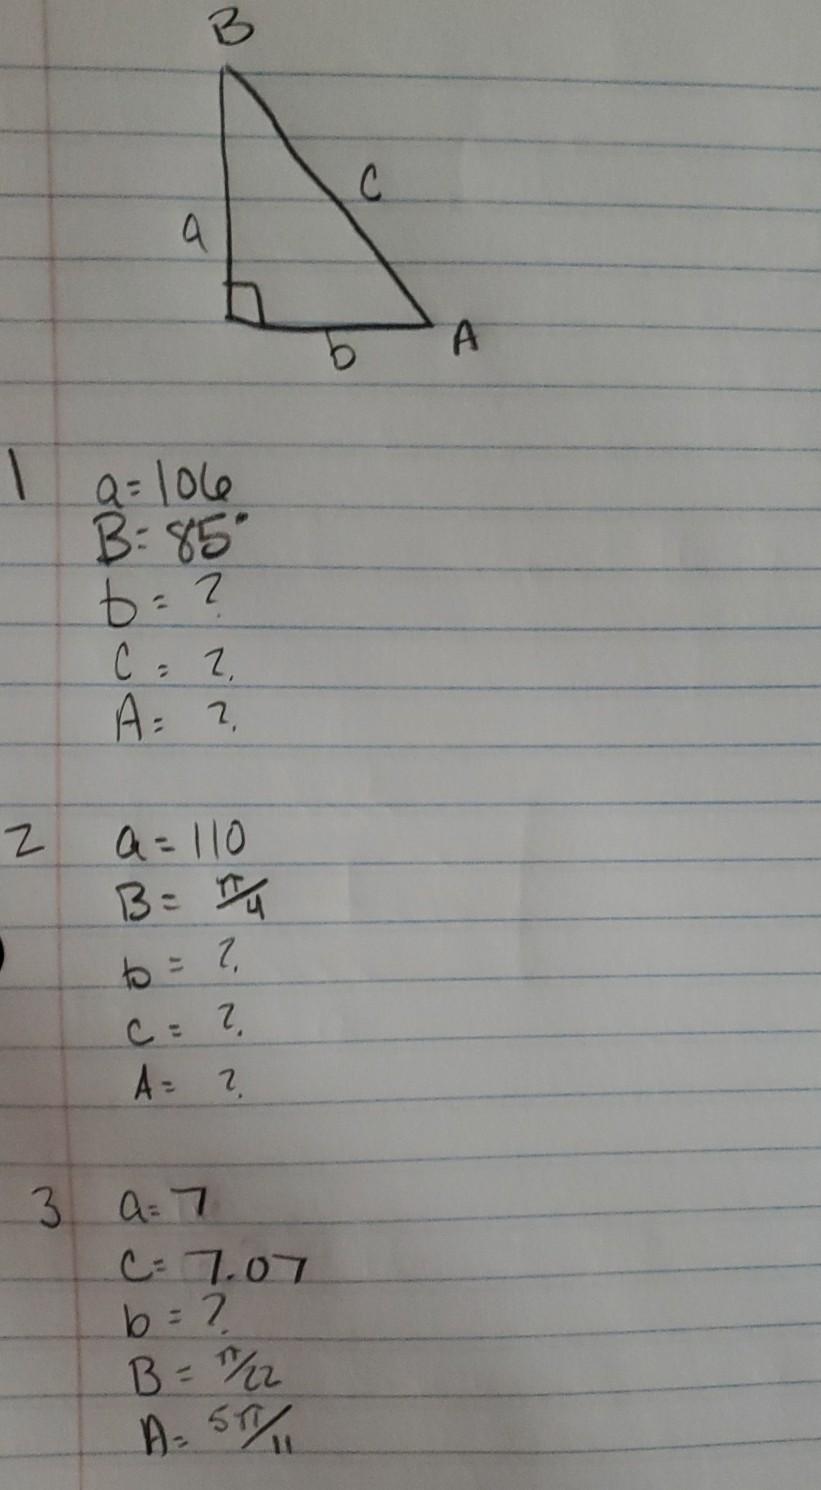 B
c
a
b
A
1 a = 106
B = 85°
b = ?
C = ?
A = ?
2 a = 110
B = π/4
b = ?
c = ?
A = ?
3 a = 7
C = 7.07
b = ?
B = π/22
A = 5π/11